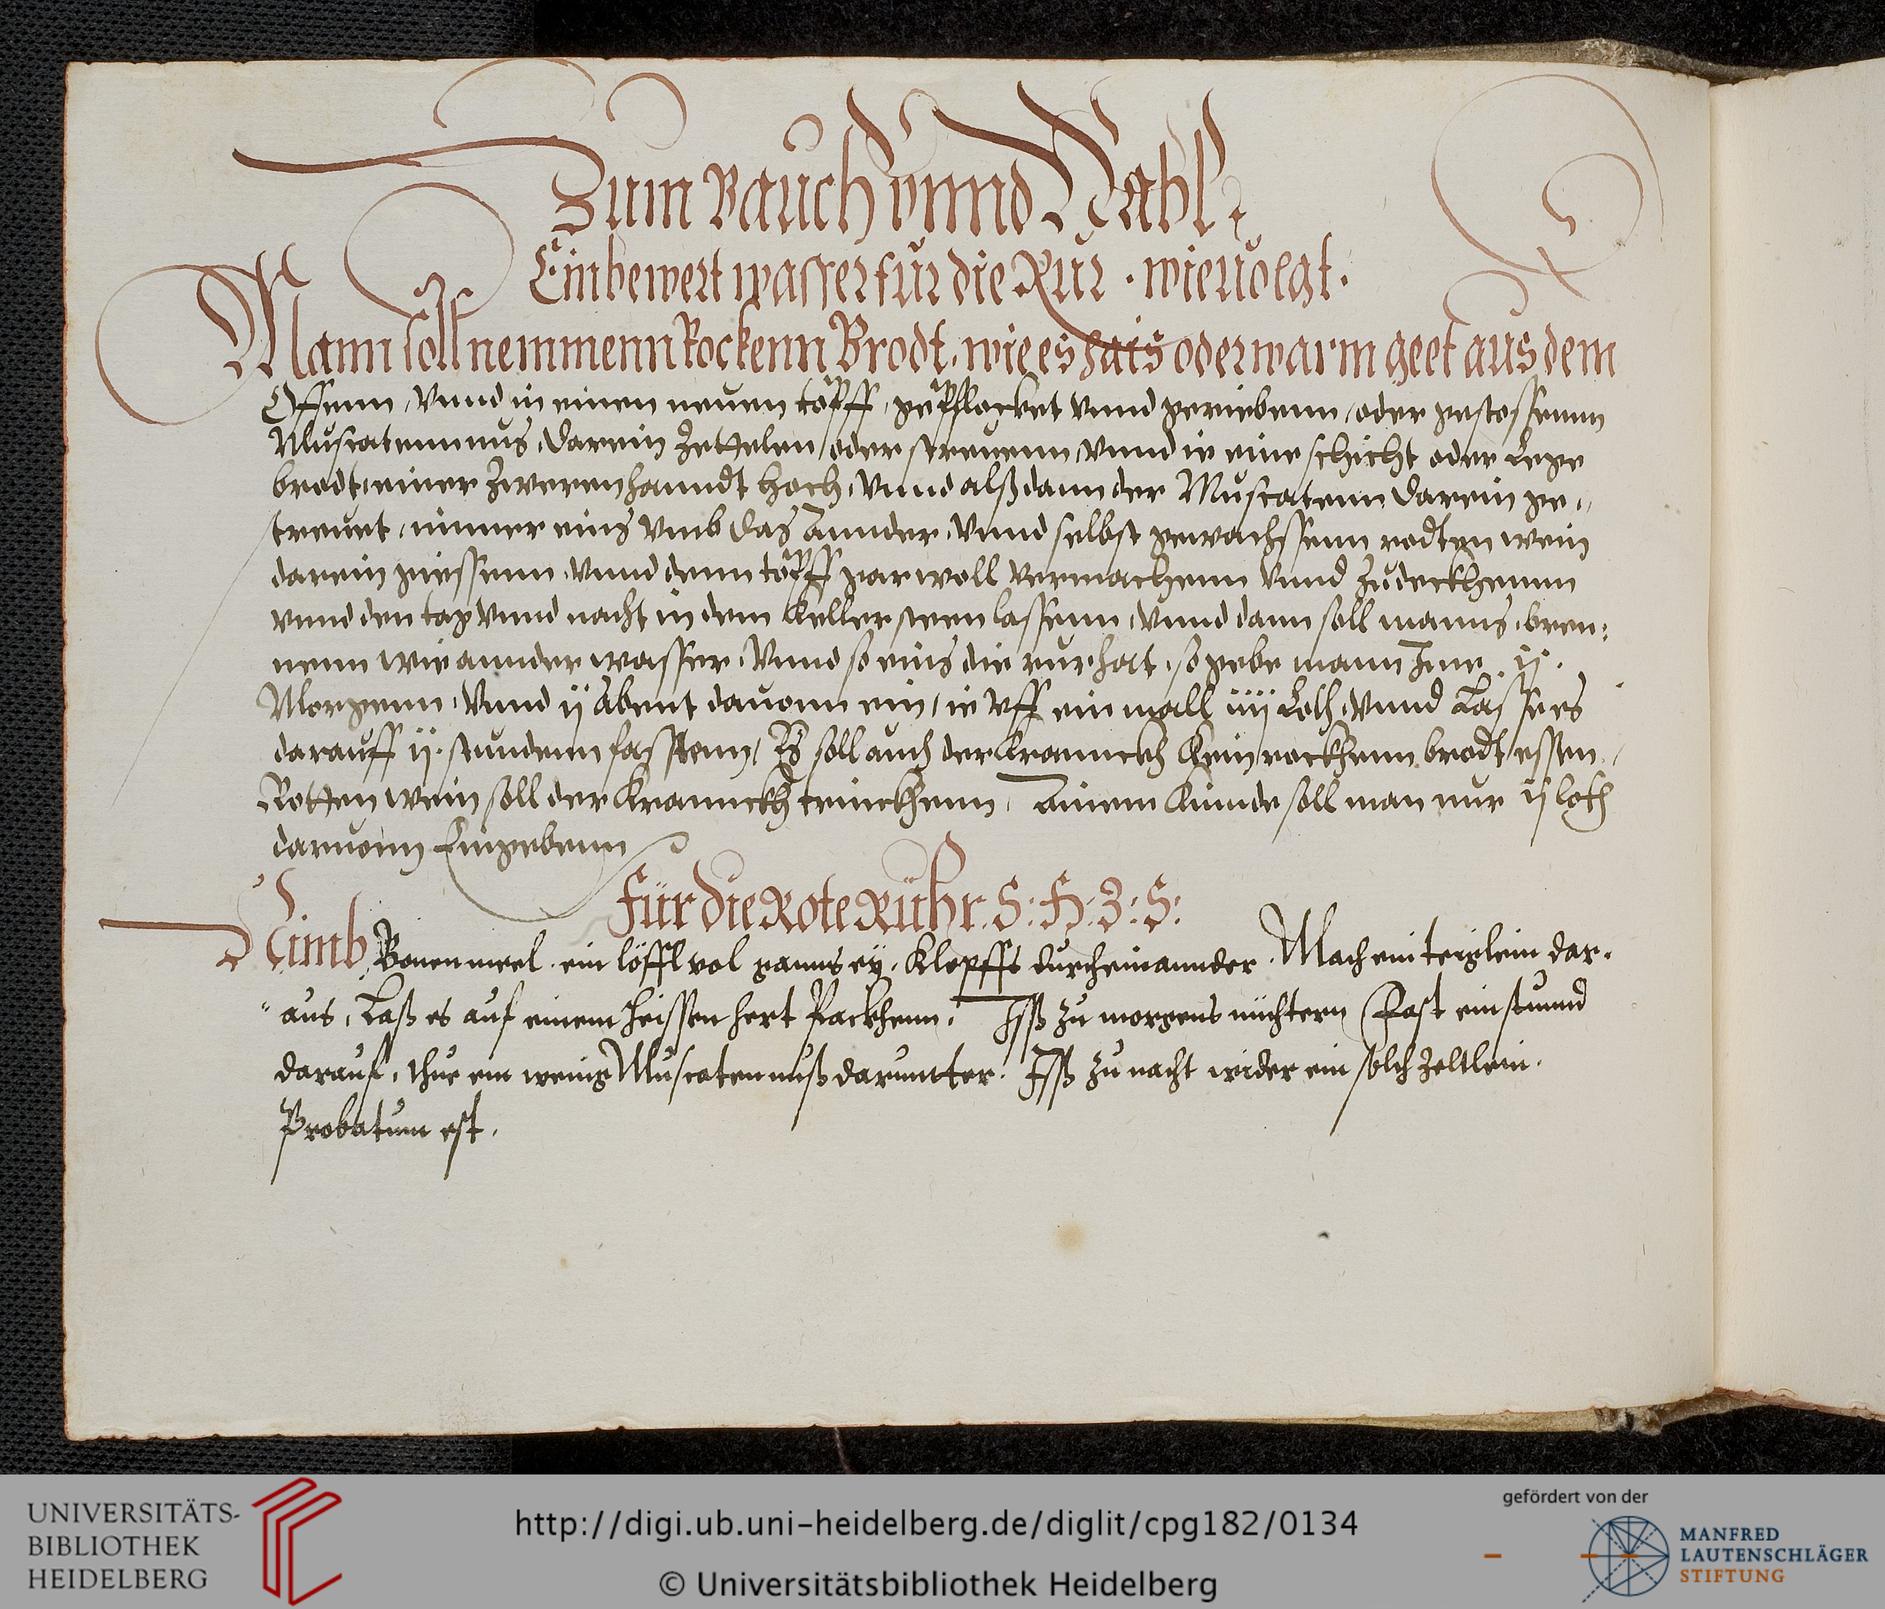 Zum Bauch vnnd Nabl
Ein bewert wasser für die Rur · wie uolgt ·
Mann soll nemmenn Rockenn Brodt, wie es hais oder warm geet aus dem
Offenn, Vnnd in einen neuen töpff, gepflocket vnnd geriebenn, oder gestossenn
Muscatennnus, darein Zettelen, oder streuenn, vnnd ie eine schicht oder Lege
brodt, einer Zweren hanndt hoch, Vnnd alß dann der Muscatenn darein ge,,
streuet, immer eins vmb das annder, Vnnd selbst gewachssenn rodten wein
darein giessenn, Vnnd denn töpff gar woll vermachenn Vnnd Zudeckhenn
vnnd den tag Vnnd nacht in dem Keller steen lassenn, Vnnd dann soll manns, bren:
nenn wie annder wasser, Vnnd so eins die rur hat, so gebe mann Jme ij.
Morgenn, Vnnd ij Abent dauonn ein, ie vff ein mall iiij Loth, Vnnd Lass es
darauff ij. stundenn fasstenn, Es soll auch der Kranncκh Kein rockhenn brodt essen,
Rotten wein soll der Kranncκh trinckhenn, Ainem Kinnde soll man nur ij loth
daruonn Eingebenn
Für die Rote Rühr. S: H: Z: S:
Nimb Bonen meel, ein löffl vol ganns ey, Klopffs durcheinannder, Mach ein teiglein dar,
aus, Laß es auf einem heissen hert Packhenn, Jss zu morgens nüchtern, Fast ein stunnd
darauf, thue ein wenig Muscatennuß darunter, Jss zu nacht wider ein solch Zeltlein.
Probatum est.
UNIVERSITÄTS-
BIBLIOTHEK
HEIDELBERG
http://digi.ub.uni-heidelberg.de/diglit/cpg182/0134
© Universitätsbibliothek Heidelberg
gefördert von der
MANFRED
LAUTENSCHLÄGER
STIFTUNG